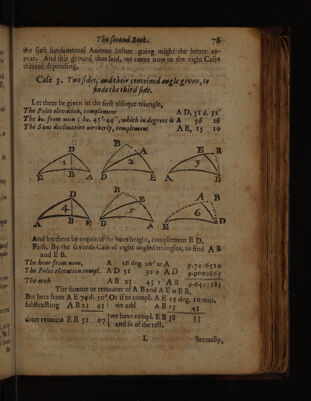 The second Book. 76
the first fundamental Axiome before going might the better ap-
pear. And this ground thus laid, we come now to the eight Cases
thereon depending.
Case 3. Two sides, and their contained angle given, to
finde the third side.
Let there be given in the first oblique triangle,
The Poles elevation, complement A D, 51 d. 32'
The ho. from noon 3 ho. 45'-44'', which in degrees is A 56 26
The Suns declination northerly, complement A E, 15 10
D
1
E B A
B D
2
D E
D A B
3
E
D
4
A B E
B
D
5
E
A B
6
E D
And let there be required the Suns height, complement E D.
First, By the seventh Case of right angled triangles, to find A B
and E B.
The hour from noon, A 56 deg. 26' is A
The Poles elevation compl. A D 51 32 s A D
The arch A B 23 43 s A B
The summe or remainer of A B and A E is E B.
But here from A E 74 d. 50' Or if to compl. A E 15 deg. 10 min.
subtracting A B 23 43 we add A B 23 43
there remains E B 51 07 we have compl. E B 38 53
and so of the rest.
L Secondly,